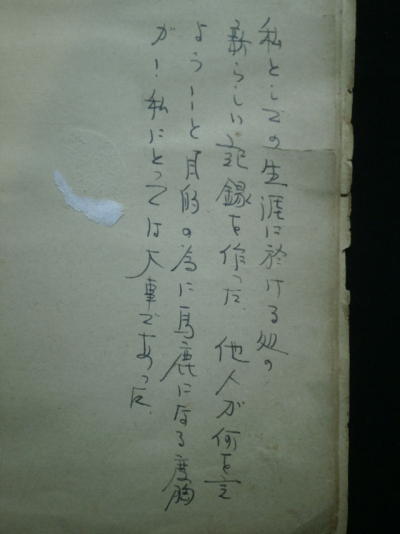 私としての生涯に於ける処の
新らしい記録を作った。他人が何を言
よう!と目的の為に馬鹿になる度胸
が!私にとっては大事であった。